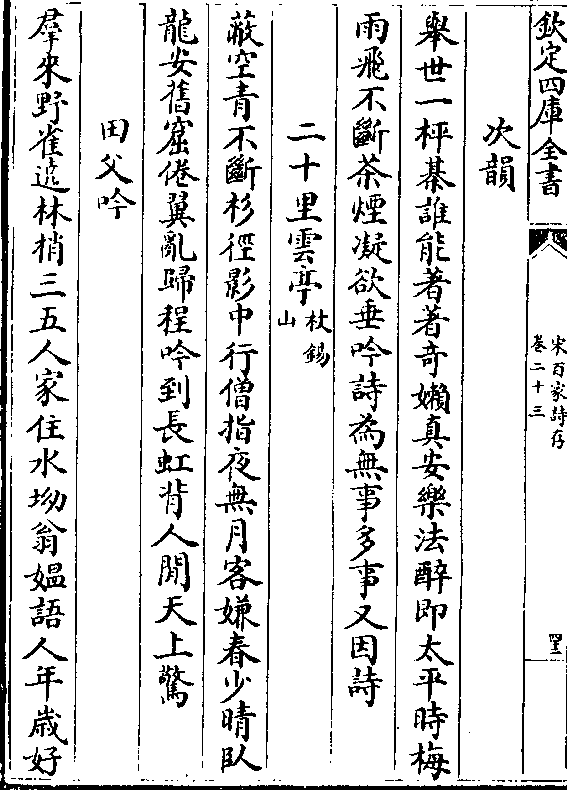 欽定四庫全書
宋百家詩存
卷二十三
次韻
舉世一枰棊誰能著著竒嬾真安樂法醉即太平時梅
雨飛不斷茶煙凝欲垂吟詩為無事多事又因詩
二十里雲亭杖錫山
蔽空青不斷杉徑影中行僧指夜無月客嫌春少晴臥
龍安舊窟倦翼亂歸程吟到長虹背人閒天上驚
田父吟
羣來野雀遶林梢三五人家住水坳翁媼語人年歲好